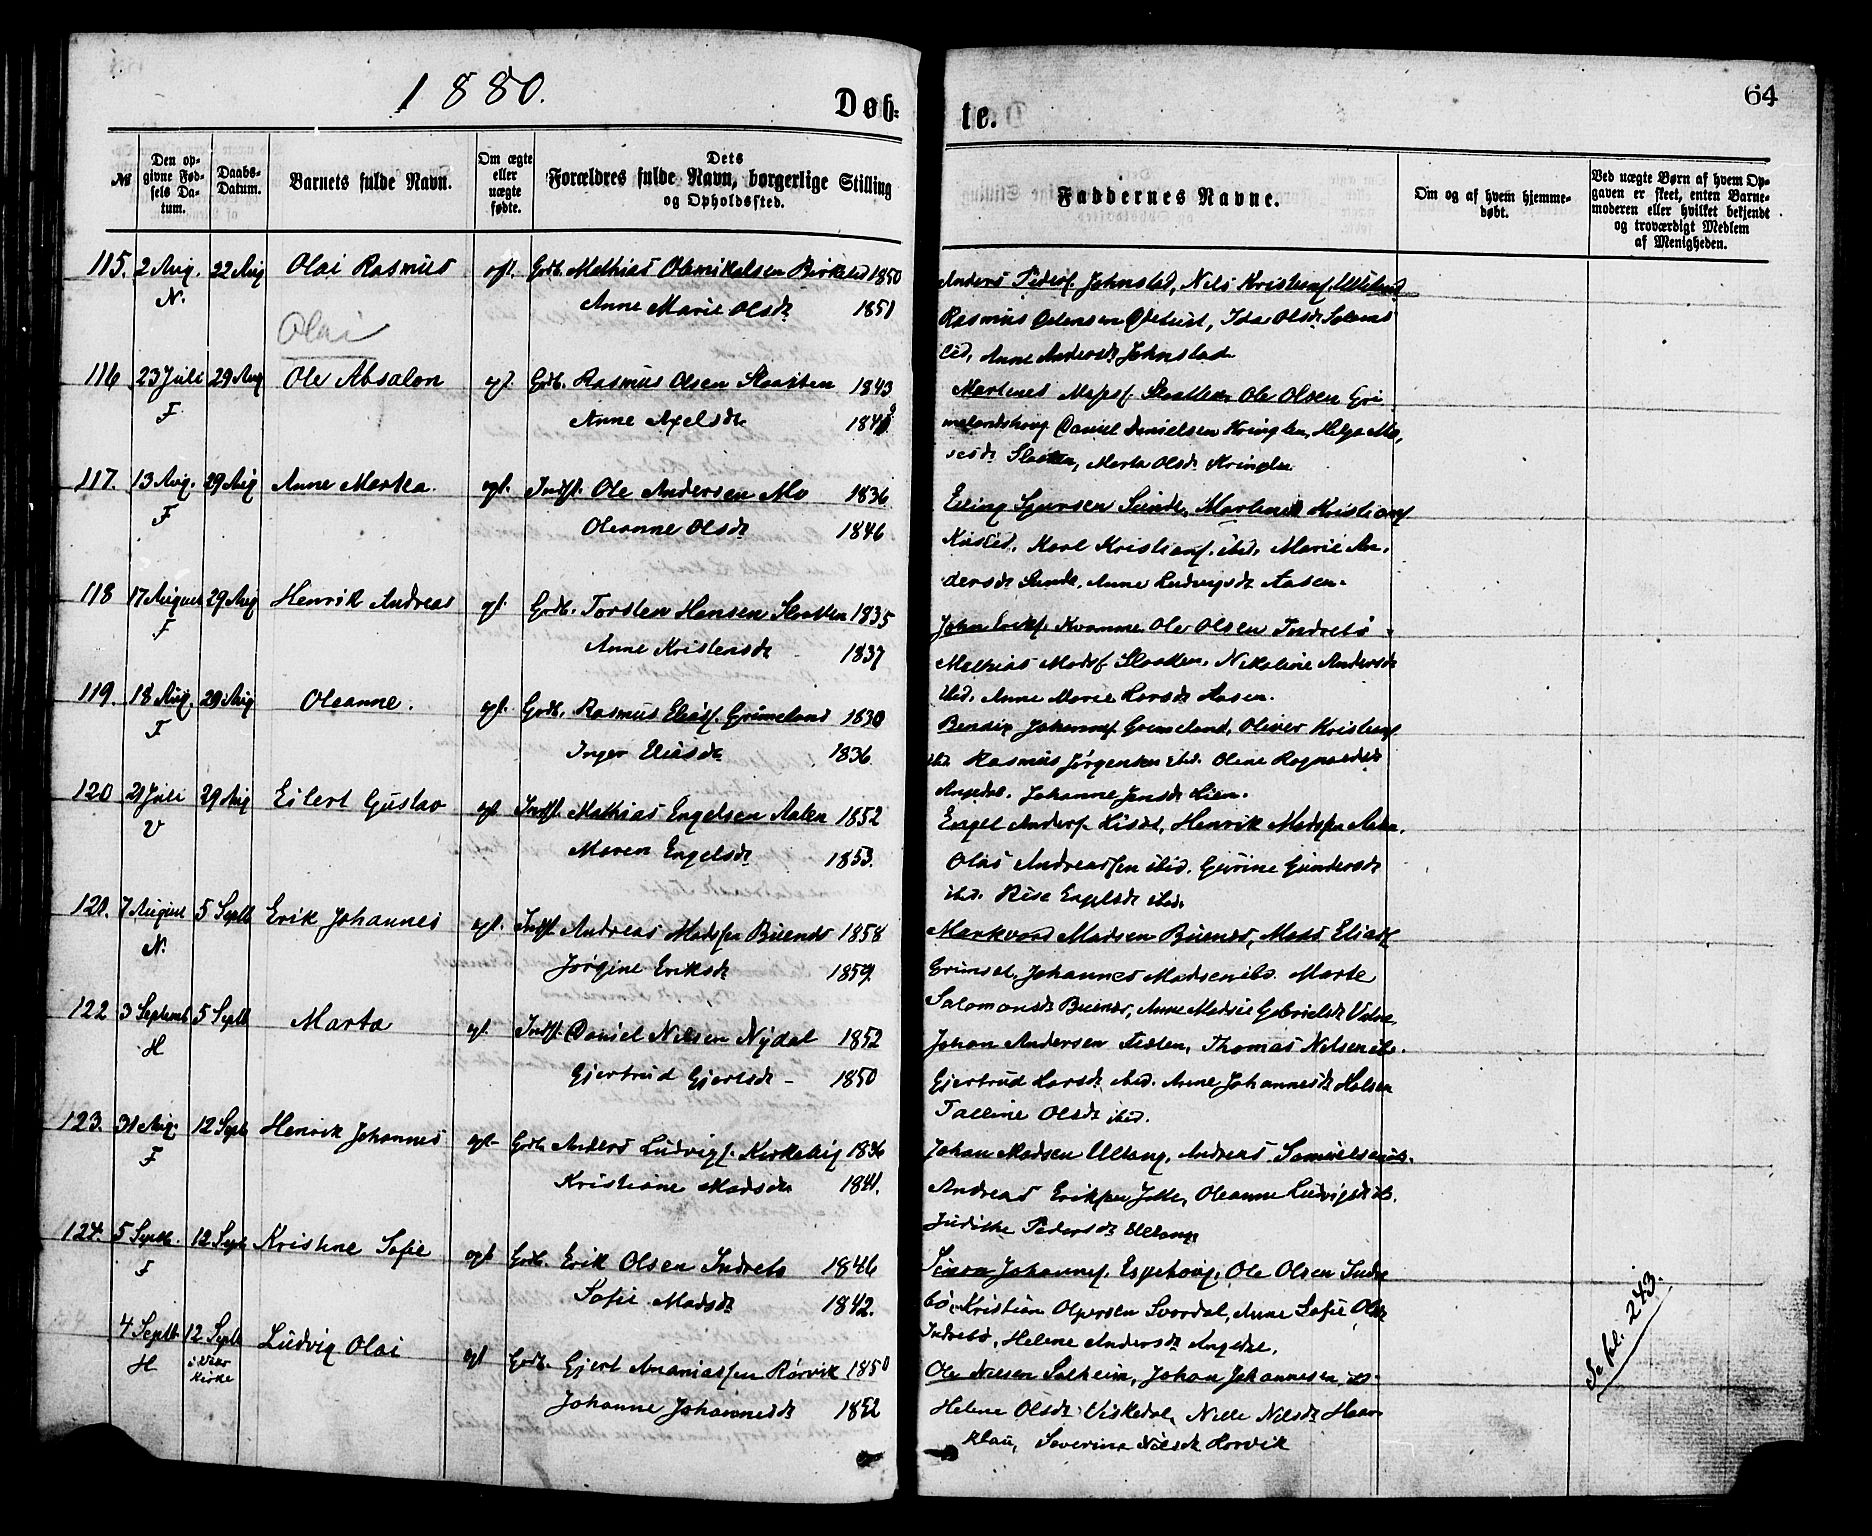 1880.
Døb-
te.
64
№
Den op-
givne Fød-
sels Da-
tum.
Daabs-
Datum.
Barnets fulde Navn.
Om ægte
eller
uægte
fødte.
Dets
Forældres fulde Navn, borgerlige Stilling
og Opholdssted.
Faddernes Navne.
Om og af hvem hjemme-
døbt.
Ved uægte Børn af hvem Op-
gaven er skeet, enten Barne-
moderen eller hvilket bekjendt
og troværdigt Medlem
af Menigheden.
115. 2 Aug. 22 Aug Olai Rasmus egt. Grdb. Mathias Olemikalsen Birkeled 1850
N. Anne Marie Olsdt 1851
Anders Peders. Johnslid, Nils Kristiens.
Rasmus Ida Olsdt
Anne Andersdt Johnstad
Olai
116 23 Juli 29 Aug Ole Absalon egt. Grdb. Rasmus Olsen Slaatten 1843
F. Anne Axelsdt
Martines Slaatten Ole Olsen Gri
melandshoug Daniel Danielsen Kringlen, Helga Mo
sesdt Slaatten, Marta Olsdt Kringlen
117. 13 Aug. 29 Aug Anne Martea. egt. Indst. Ole Andersen Mo 1836
F Oleanne Olsdt 1846
Eling Sjursen Sunde, Martines Kristians
Karl Kristians. ibid. Marie An-
dersdt Sunde, Anne Ludvigsdt Aasen.
118 17 August 29 Aug Henrik Andreas egt. Grdb. Torsten Hansen Slaatten 1835
F Anne Kristensdt 1837
John Eriks. Kvamme, Ole Olsen Indrebø
Mathias Mads. Slaatten, Nikoline Andersdt
ibid. Anne Marie Larsdt Aasen.
119. 18 Aug. 29 Aug Oleanne. egt. Grdb. Rasmus Elias. Grimeland 1830
F Inger Eliasdt 1836
Bendix Johannes. Grimeland, Oliver Kristians
ibid Rasmus Jørgensen ibid. Oline Ragnvaldsdt
Angedal. Johanne Jensdt Lien.
120 21 Juli 29 Aug Eilert Gustav egt Indst. Mathias Engelsen Aalen 1852
V Maren Engelsdt 1853.
Engel Anders. Henrik Madssen Aalen.
Olai Andreassen ibid. Gurine Gundersdt
ibid. Engelsdt ibid.
121. 7 August 5 Septb Erik Johannes egt. Indst. Andreas Madssen Buenes 1858
N. Jørgine Eriksdt 1859
Markvard Madsen Buenes, Mads Elias
Grimset, Johannes Madsen ibd. Marte
Salomonsdt Buenes, Anne Madsie Gabrielsdt
122 3 Septemb 5 Septb Marta egt. Indst. Daniel Nilsen Nydal 1852
H Gjertrud Gjertsdt - 1850
Johan Andersen Thomas Nilsen ibd.
Gjertrud Larsdt ibid. Anne Johannesdt
Talline Olsdt ibid.
123. 31 Aug. 12 Septb Henrik Johannes egt Grdb. Anders Ludvigs. Kirkebig 1836
F Kristiane Madsdt 1841.
Johan Madsen Ullang, Andreas Samuelsen ib.
Andreas Erikssen Oleanne Ludvigsdt ib.
Judithe Pedersdt Ullang
124. 5 Septb. 12 Septb Kristine Sofie egt Grdb. Erik Olsen Indrebø 1846
F Sofie Madsdt 1842.
Johannes. Espehoug, Ole Olsen Indre
bø, Kristian Svardal, Anne Sofie Olsdt
Indrebø, Helene Andersdt Angedal.
4 Septb 12 Septb Ludvig Olai egt Grdb. Gjert Ananiassen Rørvik 1850
H
kirke Johanne Johannesdt 1852
Ole Nilsen Solheim, Johan Johannesen ib.
Helene Olsdt Viskedal, Nille Nilsdt
Severine Nilsdt
Se pl. 243.